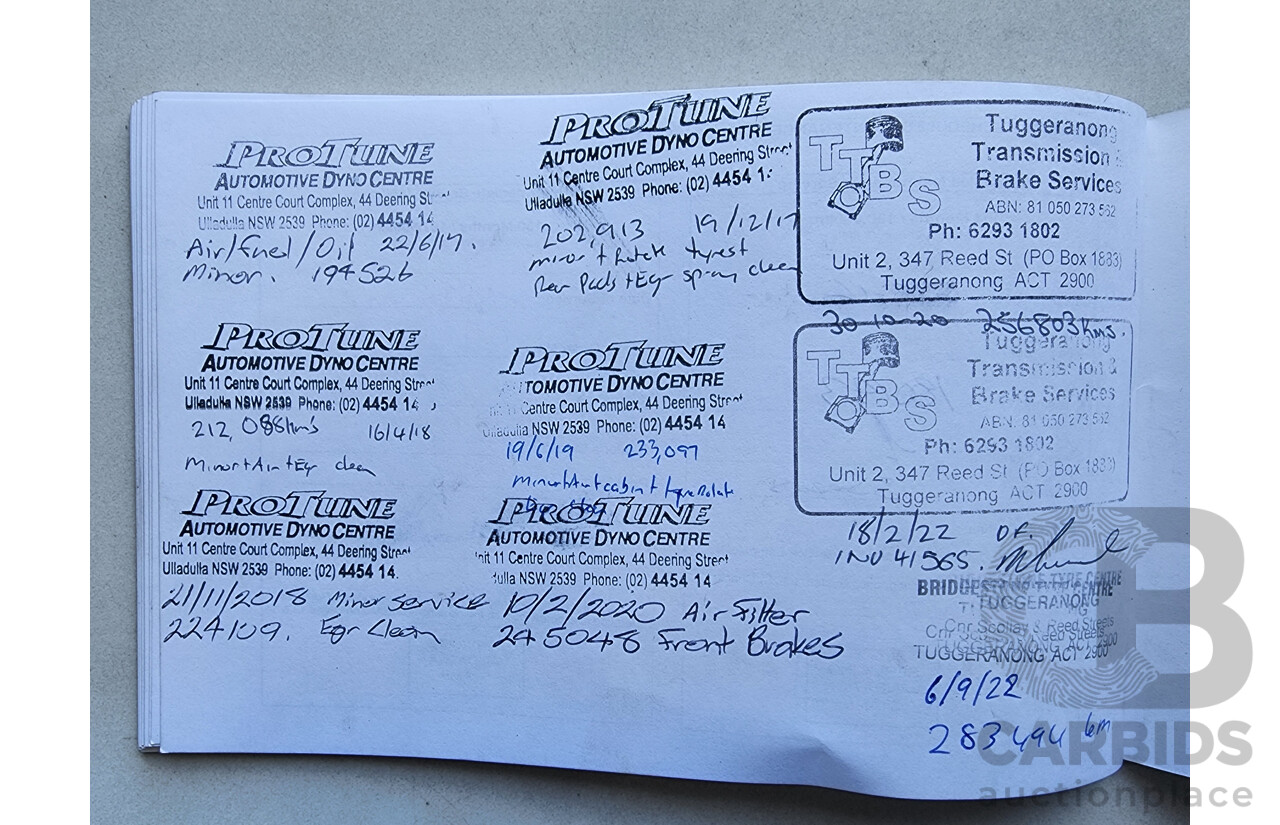 PROTUNE
AUTOMOTIVE DYNO CENTRE
Unit 11 Centre Court Complex, 44 Deering St
Ulladulla NSW 2539 Phone: (02) 4454 14
Air/Fuel/Oil 22/6/17.
Minor. 194526
PROTUNE
AUTOMOTIVE DYNO CENTRE
Unit 11 Centre Court Complex, 44 Deering Street
Ulladulla NSW 2539 Phone: (02) 4454 14
212,088kms 16/4/18
Minor+Air+Egr clean
PROTUNE
AUTOMOTIVE DYNO CENTRE
Unit 11 Centre Court Complex, 44 Deering Street
Ulladulla NSW 2539 Phone: (02) 4454 14
21/11/2018 Minor service
224109. Egr Clean
PROTUNE
AUTOMOTIVE DYNO CENTRE
Unit 11 Centre Court Complex, 44 Deering Street
Ulladulla NSW 2539 Phone: (02) 4454 1
202,913 19/12/17
minor + Rotate tyres +
Rear Pads + Egr spray clean
PROTUNE
AUTOMOTIVE DYNO CENTRE
Unit 11 Centre Court Complex, 44 Deering Street
Ulladulla NSW 2539 Phone: (02) 4454 14
19/6/19 233,097
Minor+Air+cabin+tyre Rotate
PROTUNE
AUTOMOTIVE DYNO CENTRE
Unit 11 Centre Court Complex, 44 Deering Street
Ulladulla NSW 2539 Phone: (02) 4454 14
10/2/2020 Air Filter
245048 Front Brakes
TTBS
Tuggeranong
Transmission &
Brake Services
ABN: 81 050 273 562
Ph: 6293 1802
Unit 2, 347 Reed St (PO Box 1883)
Tuggeranong ACT 2900
30-10-20 256803kms.
TTBS
Tuggeranong
Transmission &
Brake Services
ABN: 81 050 273 562
Ph: 6293 1802
Unit 2, 347 Reed St (PO Box 1883)
Tuggeranong ACT 2900
18/2/22 OF.
INV 41565.
BRIDGESTONE TYRE CENTRE
TUGGERANONG
Cnr Scollay & Reed Streets
TUGGERANONG ACT 2900
6/9/22
283494 km
CARBIDS
auctionplace